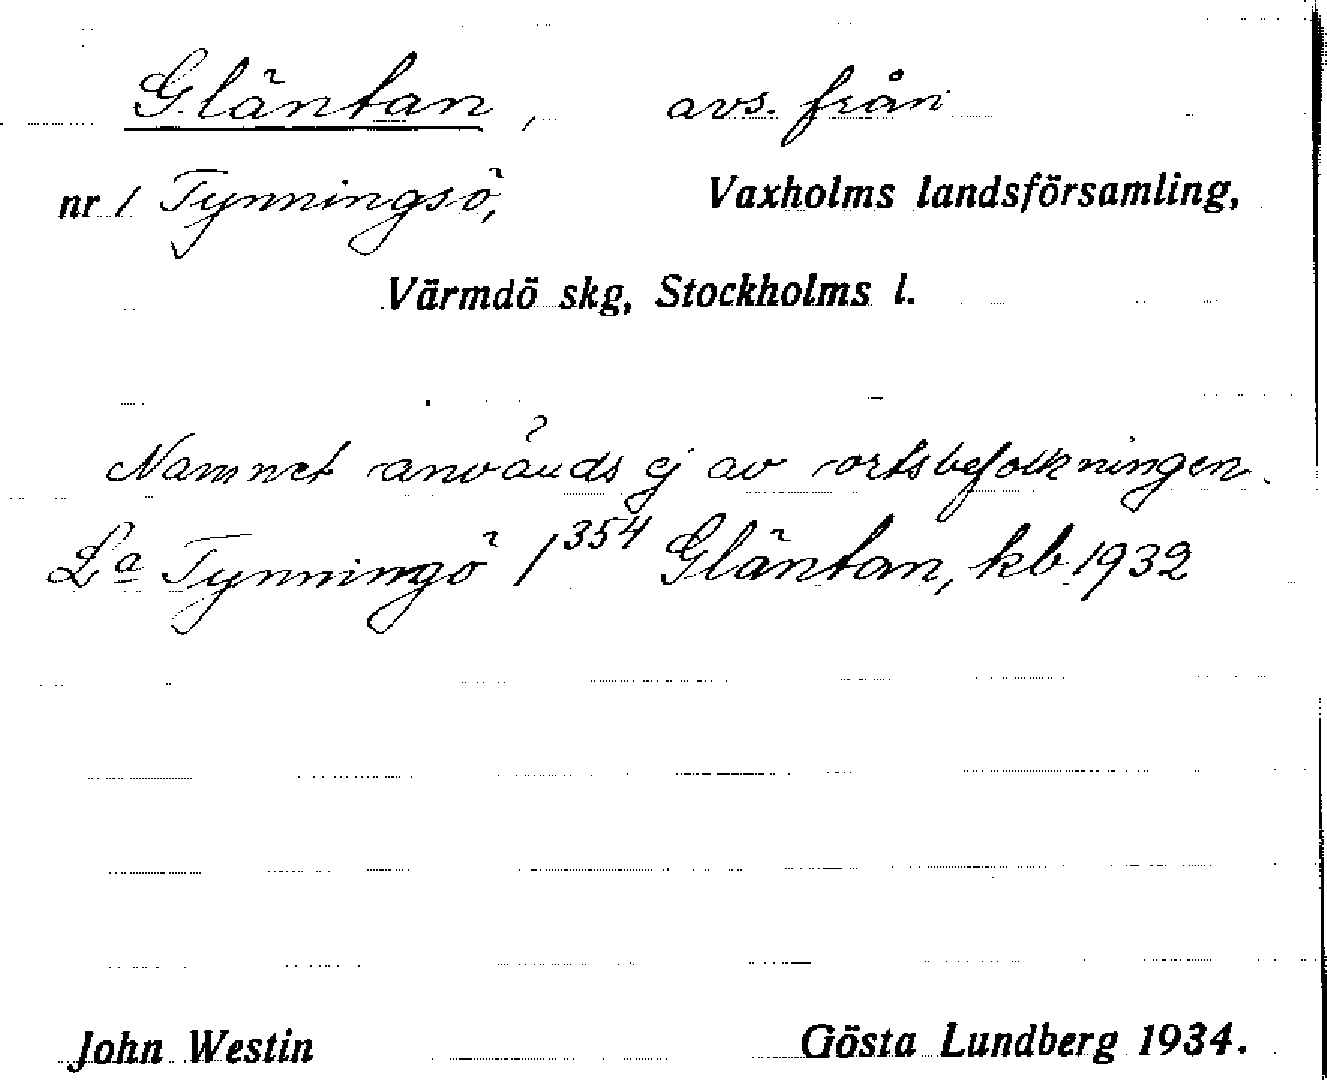 Gläntan, avs. från
nr 1 Tynningsö, Vaxholms landsförsamling,
Värmdö skg, Stockholms l.
Namnet används ej av ortsbefolkningen.
La Tynningö 1 354 Gläntan, kb. 1932
John Westin Gösta Lundberg 1934.